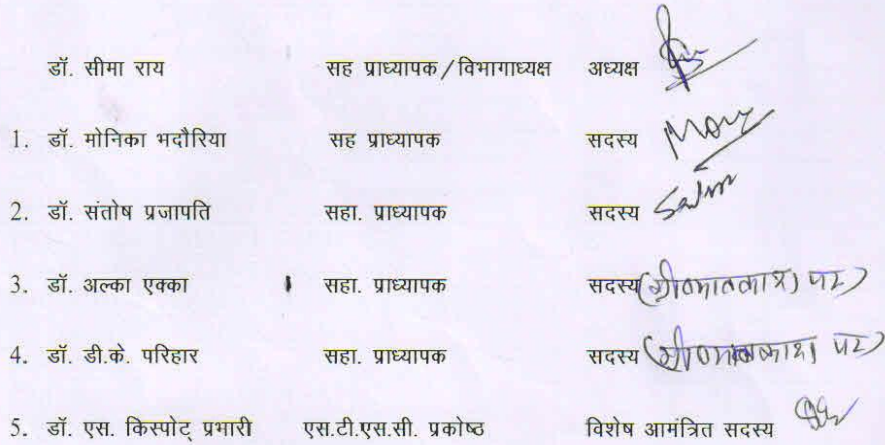 डॉ. सीमा राय सह प्राध्यापक/विभागाध्यक्ष अध्यक्ष
1. डॉ. मोनिका भदौरिया सह प्राध्यापक सदस्य
2. डॉ. संतोष प्रजापति सहा. प्राध्यापक सदस्य
3. डॉ. अल्का एक्का सहा. प्राध्यापक सदस्य (ग्रीष्मावकाश पर)
4. डॉ. डी.के. परिहार सहा. प्राध्यापक सदस्य (ग्रीष्मावकाश पर)
5. डॉ. एस. किस्पोट् प्रभारी एस.टी.एस.सी. प्रकोष्ठ विशेष आमंत्रित सदस्य